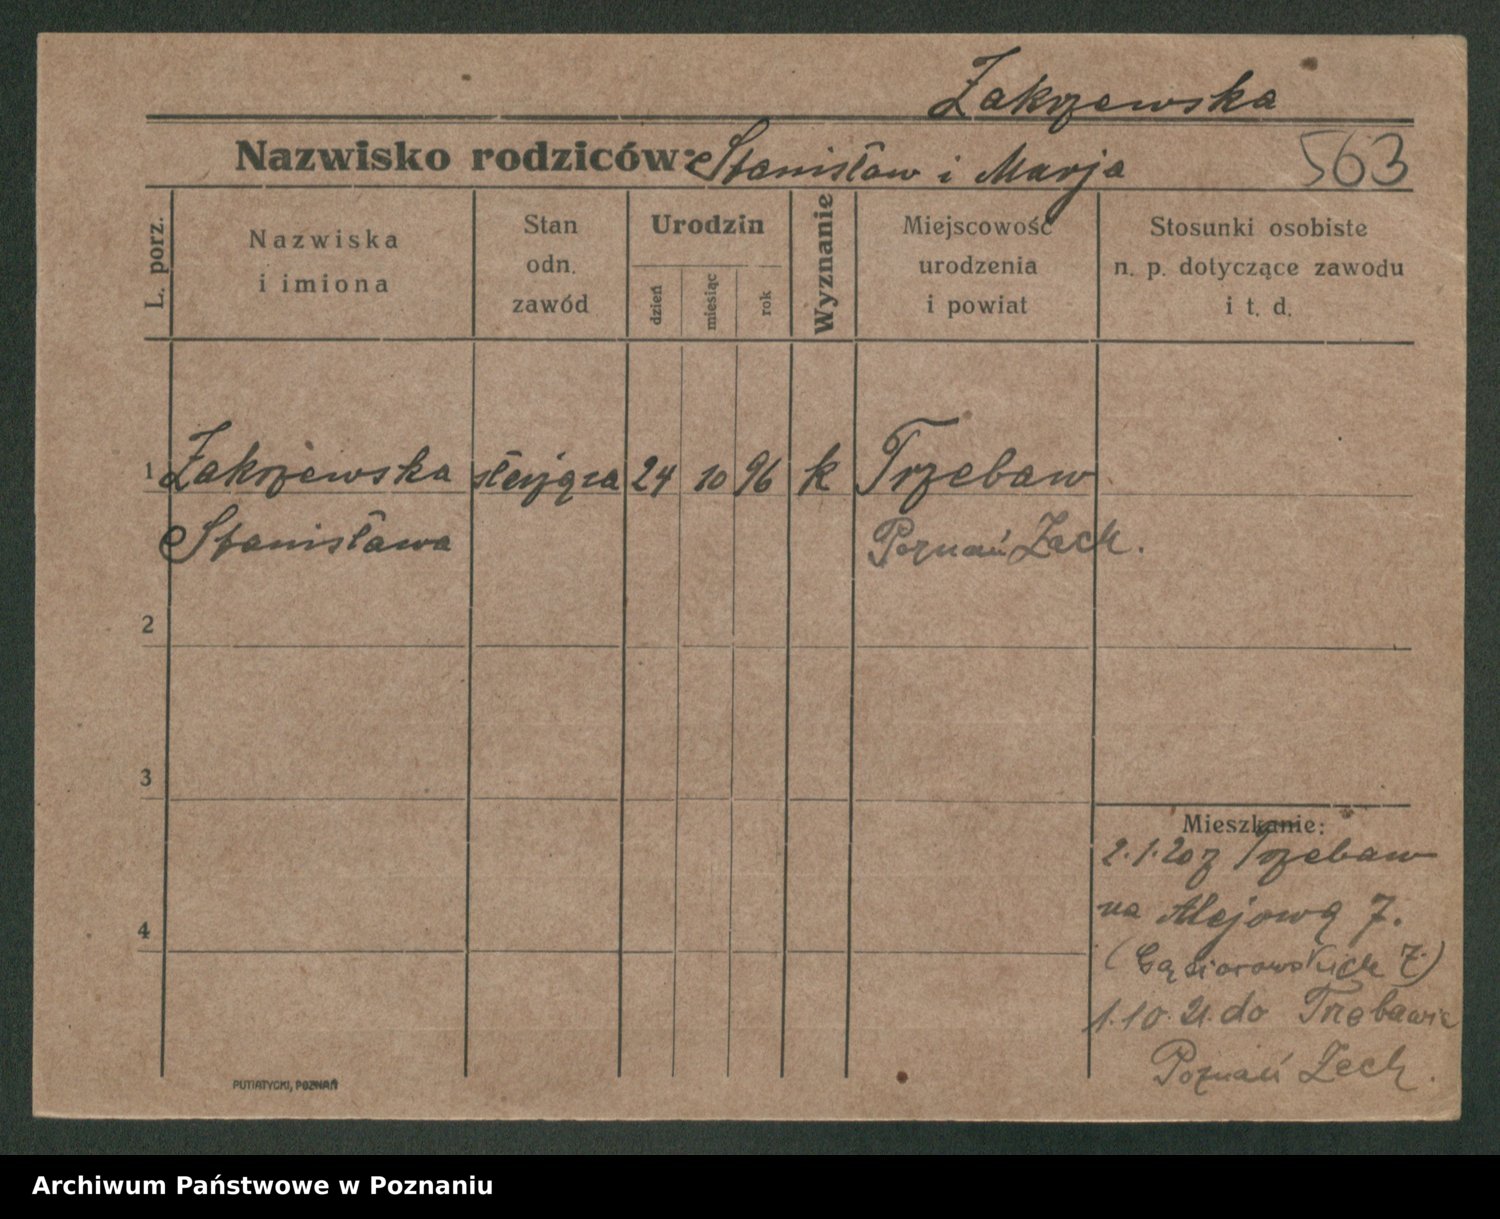 Zakrzewska
Nazwisko rodziców: Stanisław i Marja 563
L. porz.
Nazwiska
i imiona
Stan
odn.
zawód
Urodzin
dzień
miesiąc
rok
Wyznanie
Miejscowość
urodzenia
i powiat
Stosunki osobiste
n. p. dotyczące zawodu
i t. d.
1 Zakrzewska służąca 24 10 96 k Trzebaw
Stanisława Poznań Zach.
2
3
4
Mieszkanie:
2.1.20 z Trzebaw
na Alejową 7.
(Gąsiorowskich 7)
1.10.21. do Trzebawia
Poznań Zach.
PUTIATYCKI, POZNAŃ
Archiwum Państwowe w Poznaniu